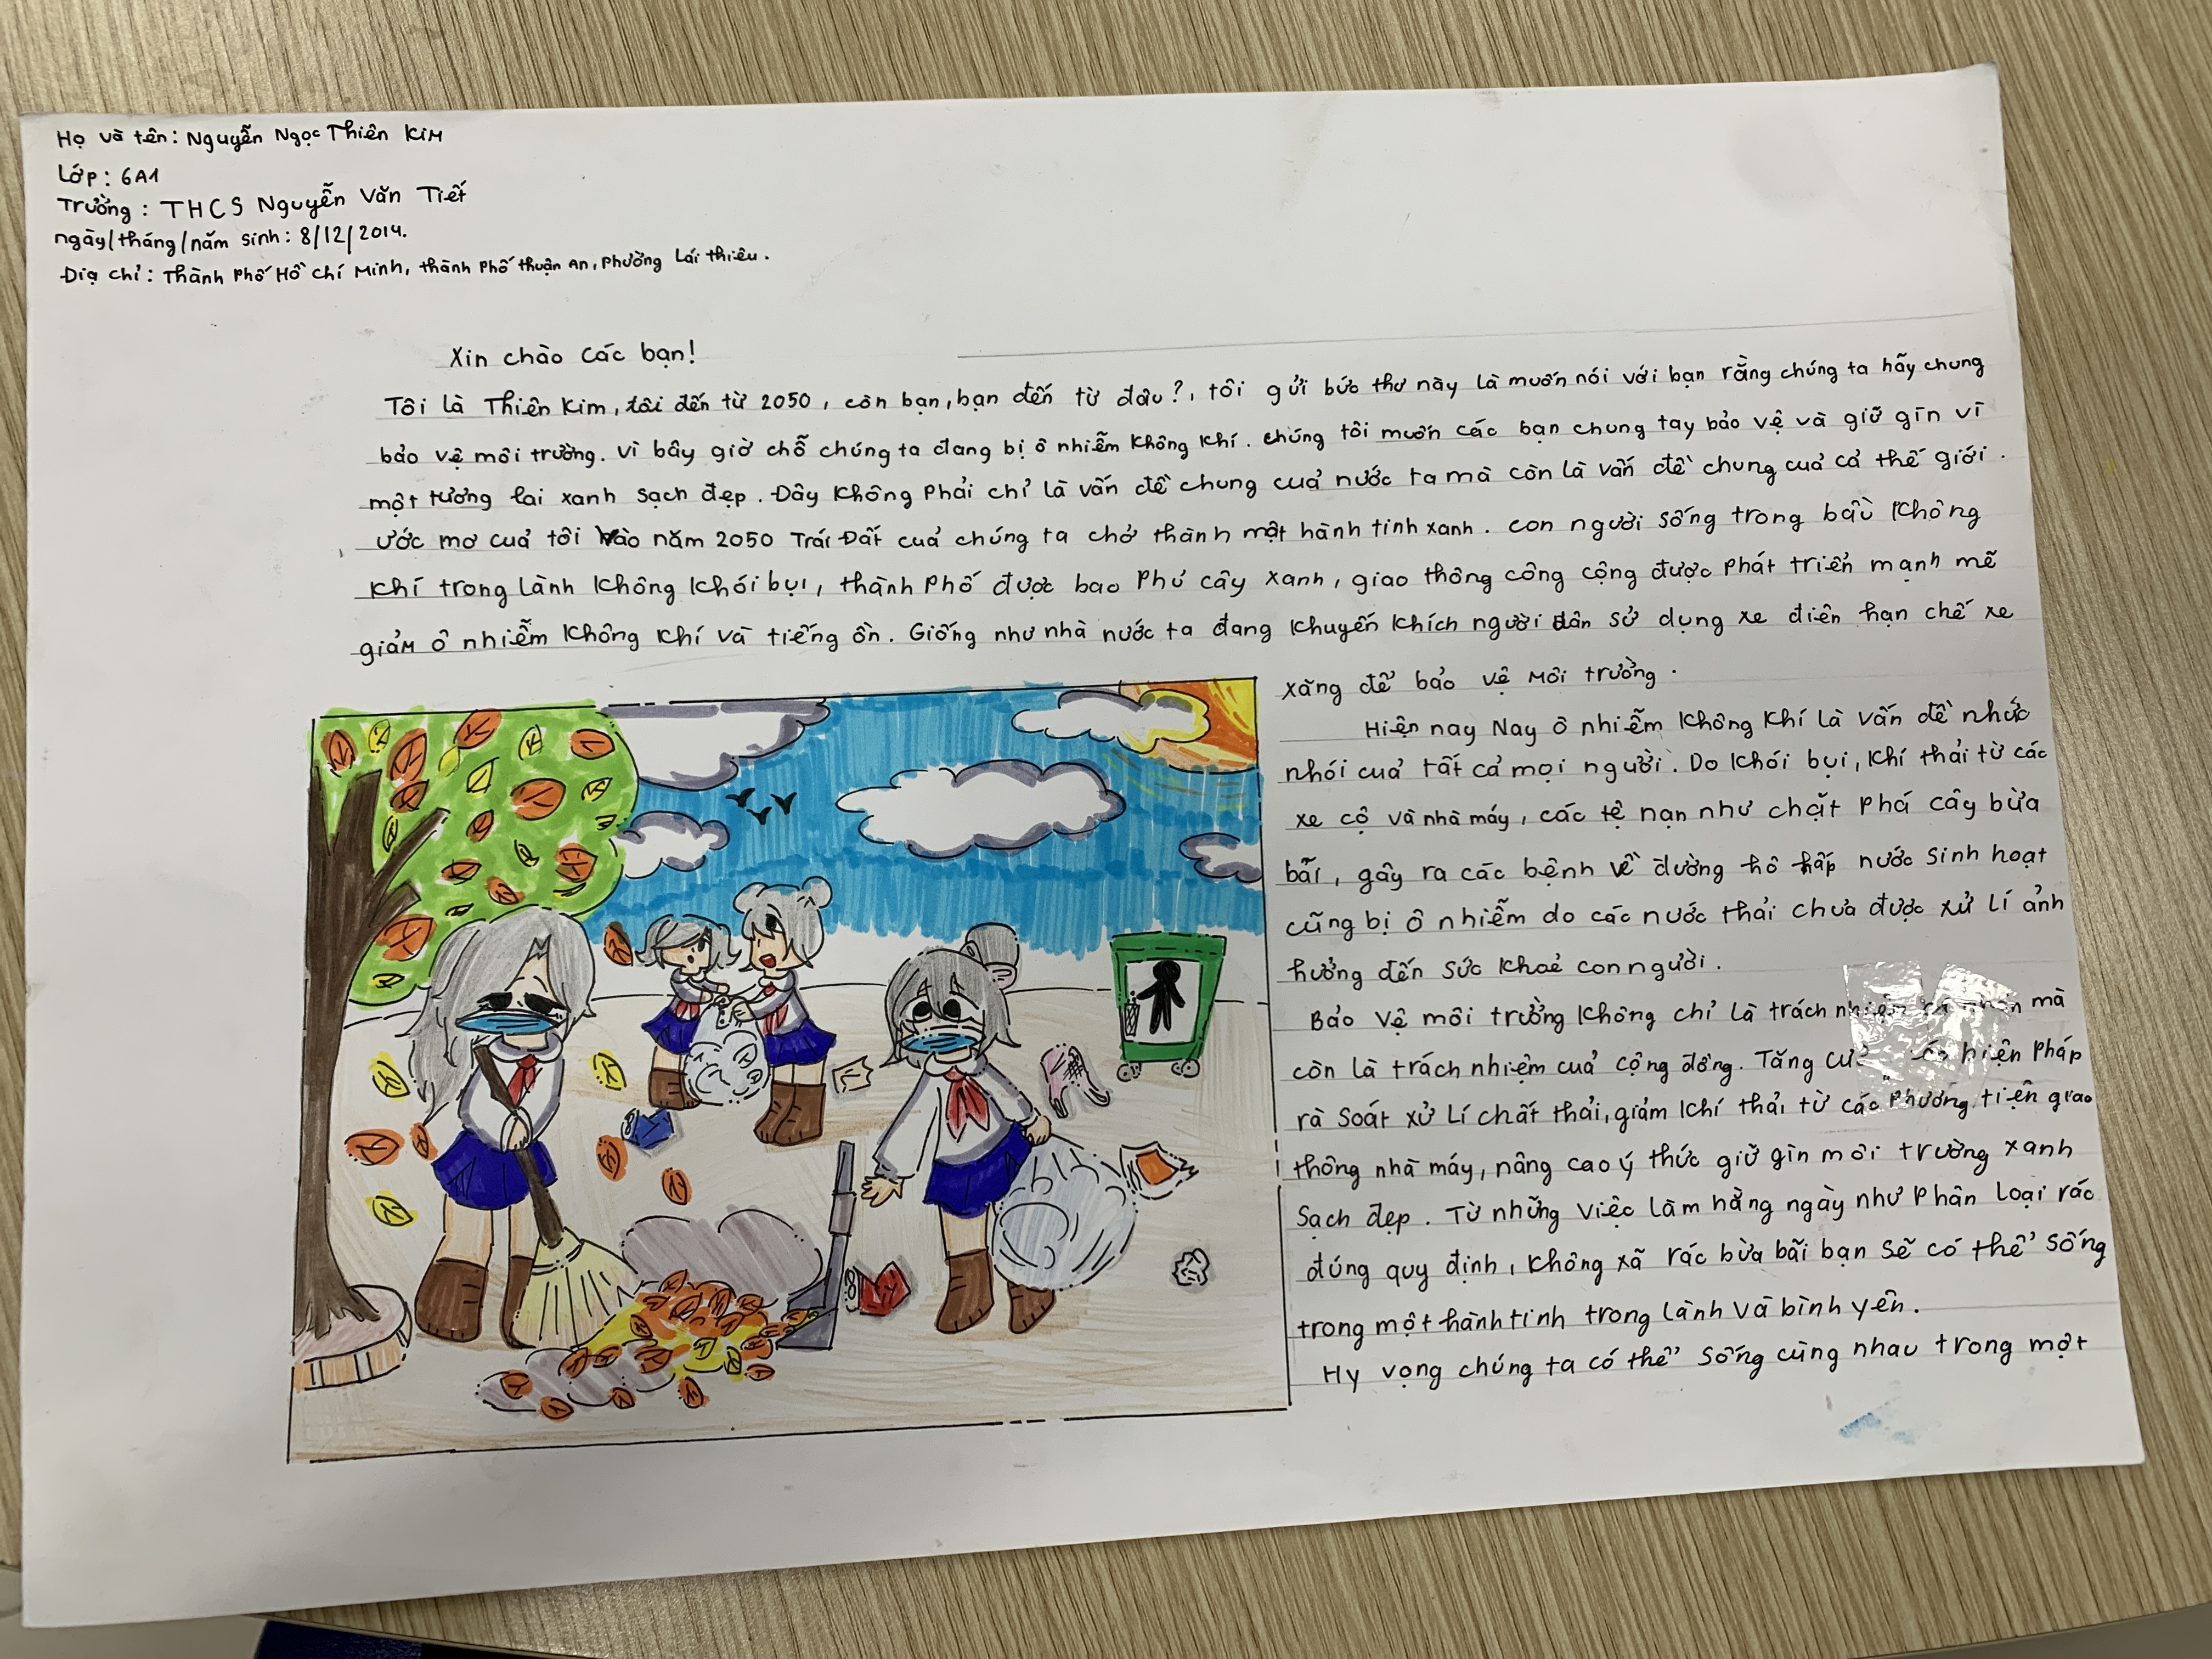 Họ và tên: Nguyễn Ngọc Thiên Kim
Lớp: 6A1
Trường: THCS Nguyễn Văn Tiết
ngày/tháng/năm sinh: 8/12/2014.
Địa chỉ: Thành Phố Hồ Chí Minh, thành Phố thuận An, Phường Lái thiêu.
Xin chào các bạn!
Tôi là Thiên Kim, tôi đến từ 2050, còn bạn, bạn đến từ đâu?, tôi gửi bức thư này là muốn nói với bạn rằng chúng ta hãy chung
bảo vệ môi trường. vì bây giờ chỗ chúng ta đang bị ô nhiễm không khí. chúng tôi muốn các bạn chung tay bảo vệ và giữ gìn vì
một tương lai xanh sạch đẹp. Đây không phải chỉ là vấn đề chung cuả nước ta mà còn là vấn đề chung cuả cả thế giới.
ước mơ cuả tôi vào năm 2050 Trái Đất cuả chúng ta chở thành một hành tinh xanh. con người sống trong bầu không
khí trong lành không khói bụi, thành phố được bao phủ cây xanh, giao thông công cộng được phát triển mạnh mẽ
giảm ô nhiễm không khí và tiếng ồn. Giống như nhà nước ta đang khuyến khích người dân sử dụng xe điện hạn chế xe
xăng để bảo vệ môi trường.
Hiện nay Nay ô nhiễm không khí là vấn đề nhức
nhói cuả tất cả mọi người. Do khói bụi, khí thải từ các
xe cộ và nhà máy, các tệ nạn như chặt phá cây bừa
bãi, gây ra các bệnh về đường hô hấp nước sinh hoạt
cũng bị ô nhiễm do các nước thải chưa được xử lí ảnh
hưởng đến sức khoẻ con người.
Bảo vệ môi trường không chỉ là trách nhiệm cá nhân mà
còn là trách nhiệm cuả cộng đồng. Tăng biện pháp
rà soát xử lí chất thải, giảm khí thải từ các phương tiện giao
thông nhà máy, nâng cao ý thức giữ gìn môi trường xanh
sạch đẹp. Từ những việc làm hằng ngày như phân loại rác
đúng quy định, không xã rác bừa bãi bạn sẽ có thể sống
trong một hành tinh trong lành và bình yên.
Hy vọng chúng ta có thể sống cùng nhau trong một